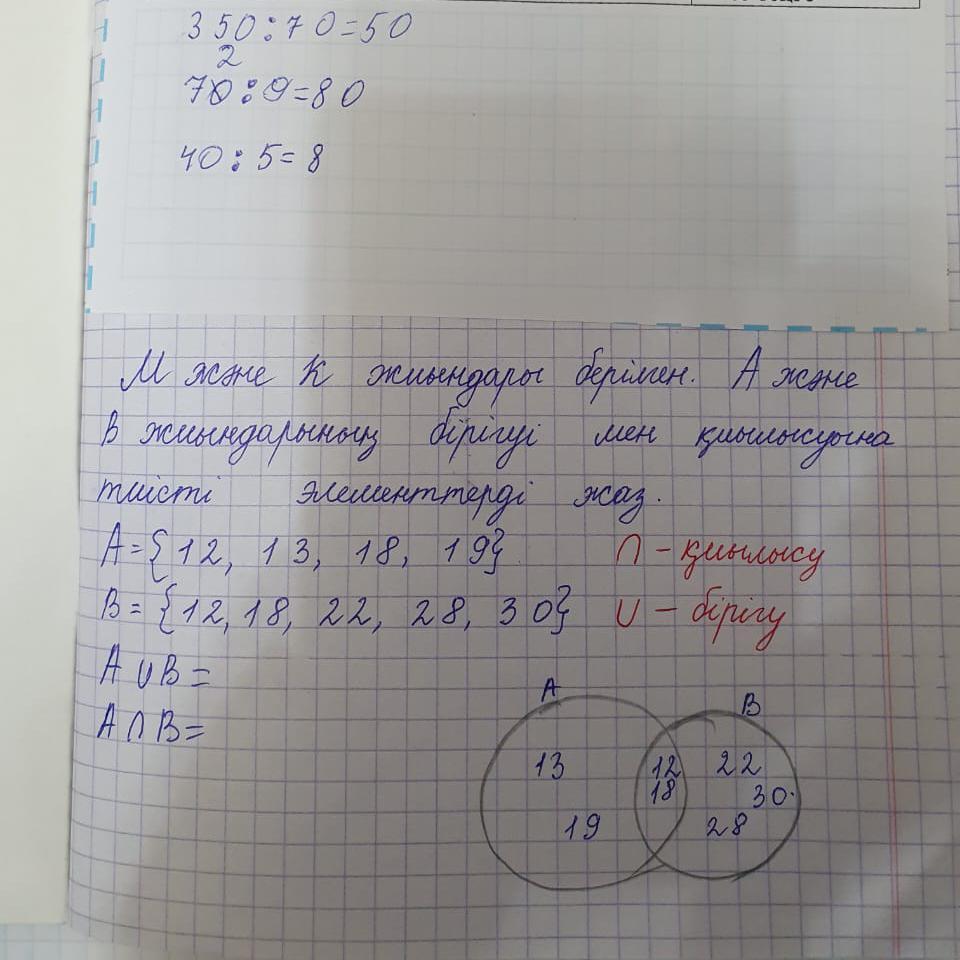 350:70=50
2
70:9=80
40:5=8
М және К жиындары берілген. А және
В жиындарының бірігуі мен қиылысуына
тиісті элементтерді жаз.
A={12, 13, 18, 19}
∩ – қиылысу
B={12, 18, 22, 28, 30}
∪ – бірігу
A∪B=
A∩B=
A
B
13
12
22
18
30
19
28